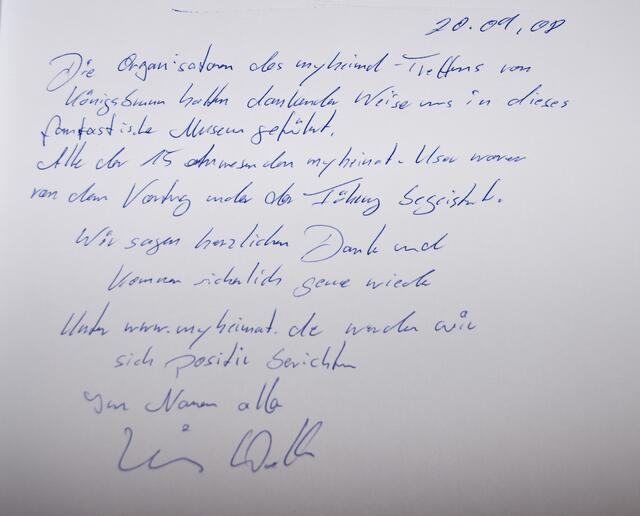 20.09.08
Die Organisatoren des myheimat-Treffens von
Königsbrunn hatten dankender Weise uns in dieses
fantastische Museum geführt.
Alle der 15 anwesenden myheimat-User waren
von dem Vortrag und der Führung begeistert.
Wir sagen herzlichen Dank und
kommen sicherlich gerne wieder
Unter www.myheimat.de werden wir
sich positiv berichten
Im Namen aller